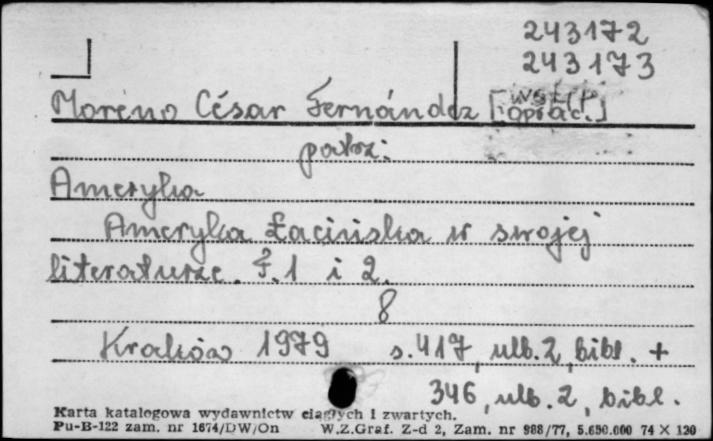 243172
243173
Moreno César Fernández [oprac.]
wstęp
patrz:
Ameryka
Ameryka Łacińska w swojej
literaturze. T.1 i 2.
8
Kraków 1979 s.417, ulb.2, bibl. +
346, ulb.2, bibl.
Karta katalogowa wydawnictw ciągłych i zwartych.
Pu-B-122 zam. nr 1674/DW/On W.Z.Graf. Z-d 2, Zam. nr 988/77, 5.650.000 74 X 120